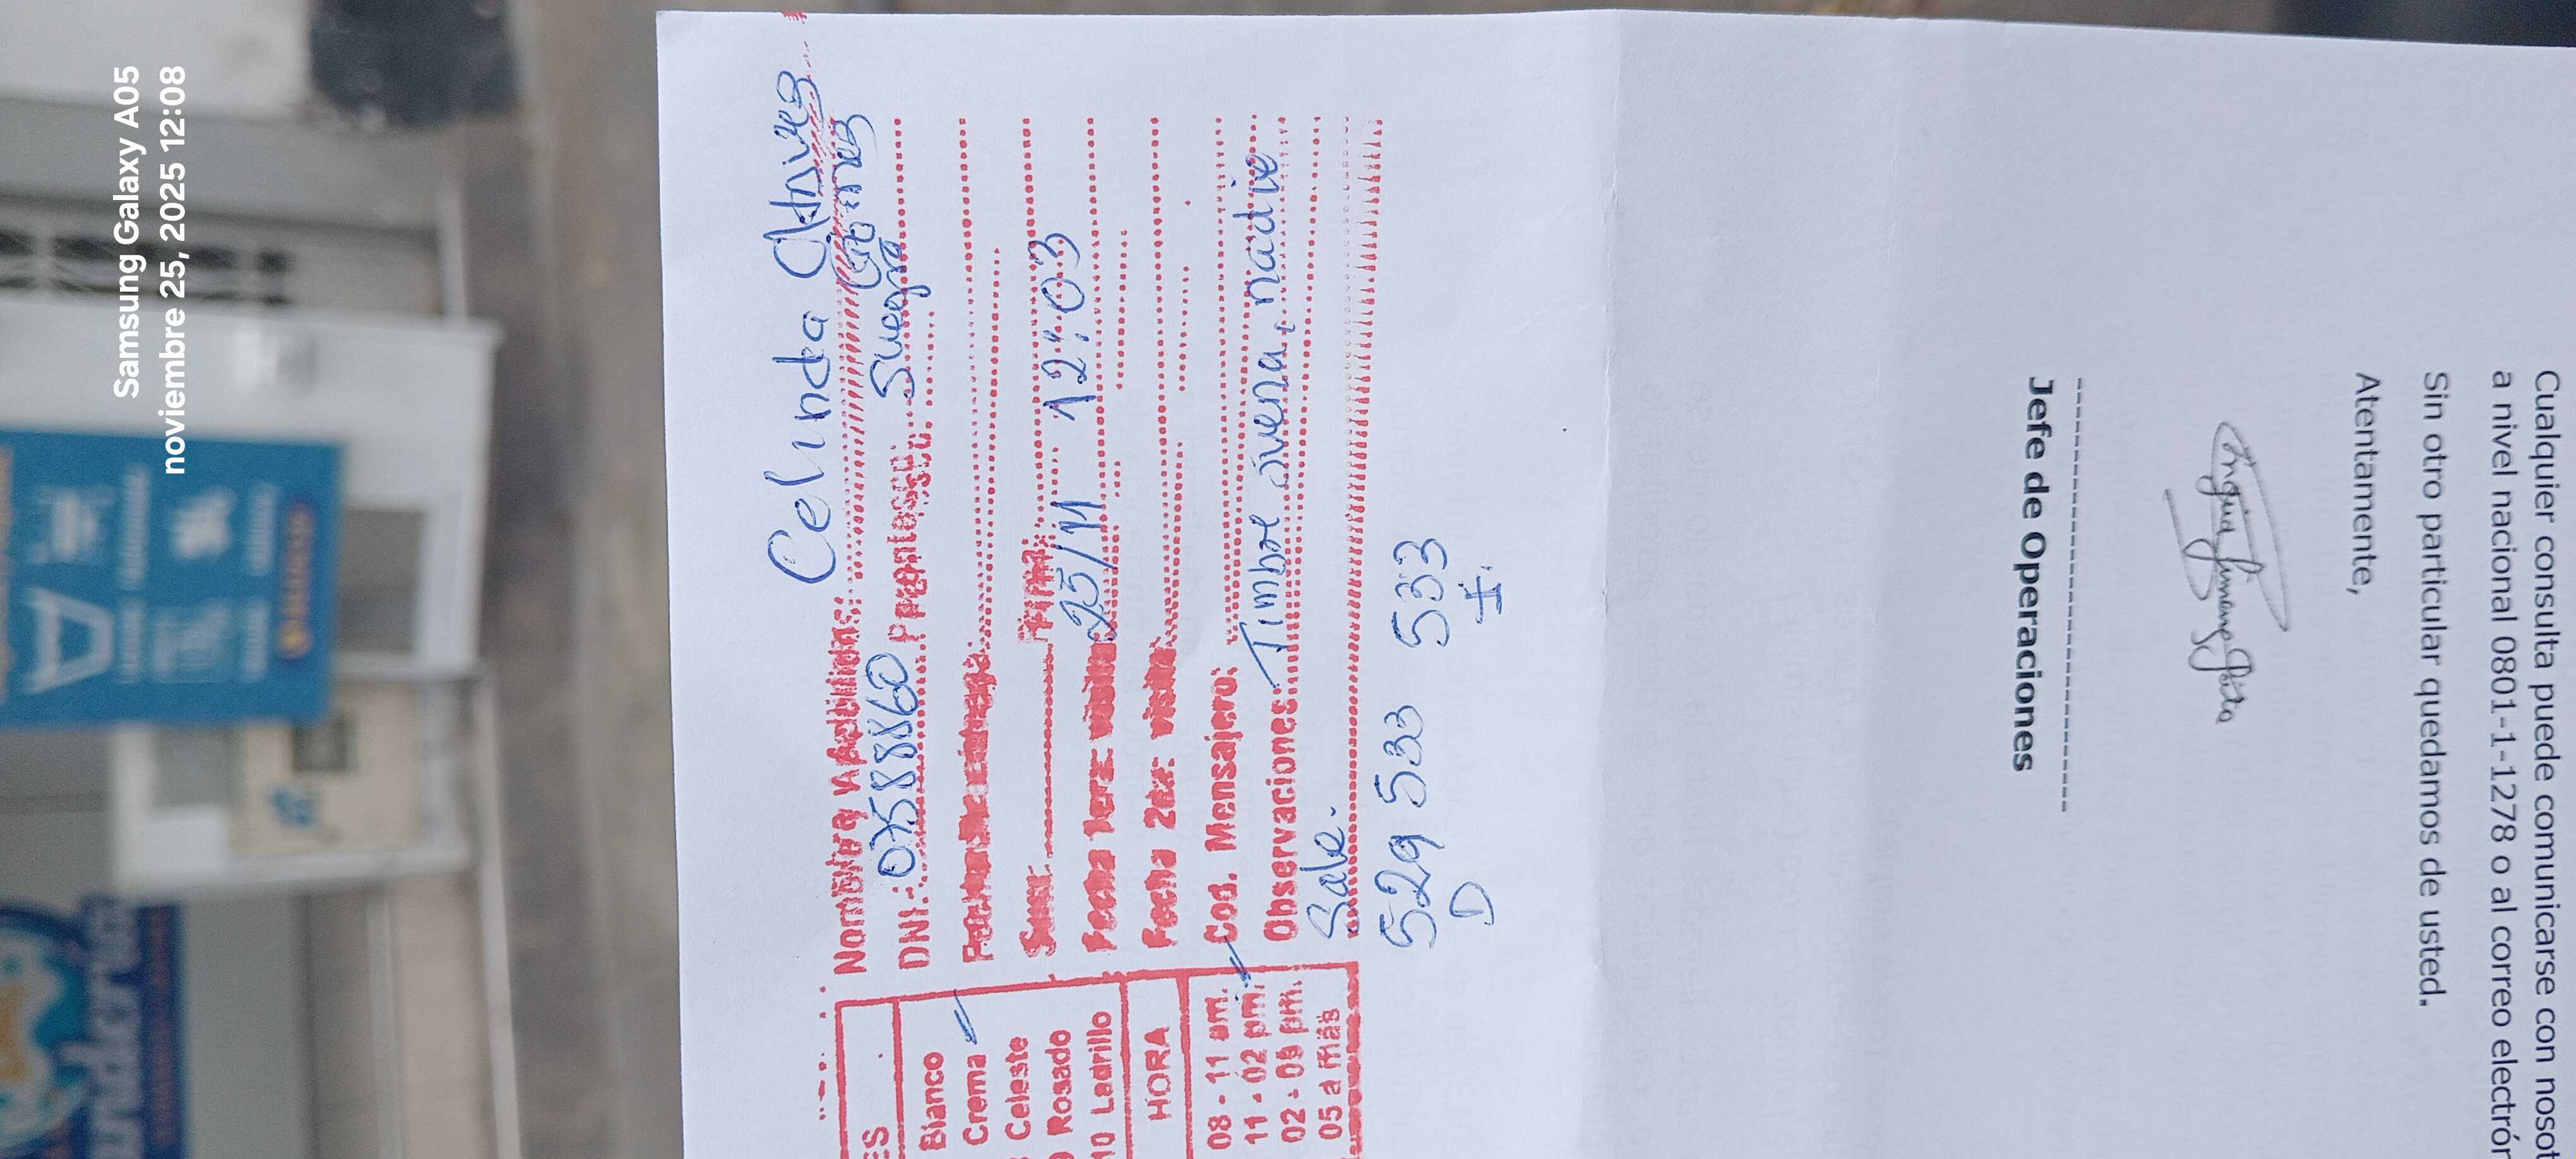 Samsung Galaxy A05
noviembre 25, 2025 12:08
Celinda
Nombre y Apellidos:
DNI.: 07588860 Parentesco: Suegra
Fecha
Firma:
Fecha 1era: visita: 25/11 12:03
Fecha 2da: visita
Cod. Mensajero:
Observaciones: Timbre suena, nadie
Sale.
529 533 533
D I.
ES
Blanco
Crema
Celeste
Rosado
10 Ladrillo
HORA
08 - 11 am.
11 - 02 pm.
02 - 05 pm.
05 a más
Cualquier consulta puede comunicarse con nosot
a nivel nacional 0801-1-1278 o al correo electrón
Sin otro particular quedamos de usted.
Atentamente,
Jefe de Operaciones